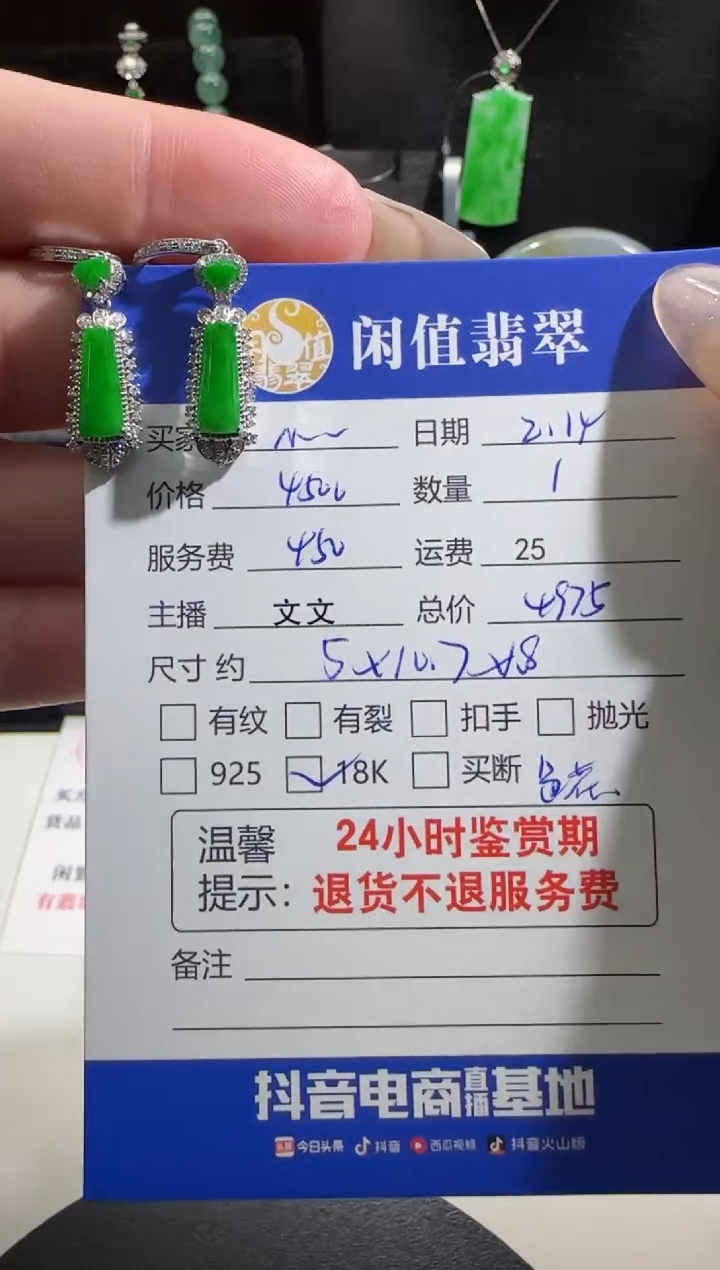 闲值翡翠
买家 日期 2.14
价格 4500 数量 1
服务费 450 运费 25
主播 文文 总价 4975
尺寸 约 5×10.7×8
有纹 有裂 扣手 抛光
925 18K 买断
温馨 24小时鉴赏期
提示： 退货不退服务费
备注
抖音电商直播基地
头条 今日头条 抖音 西瓜视频 抖音火山版
货品
有翡